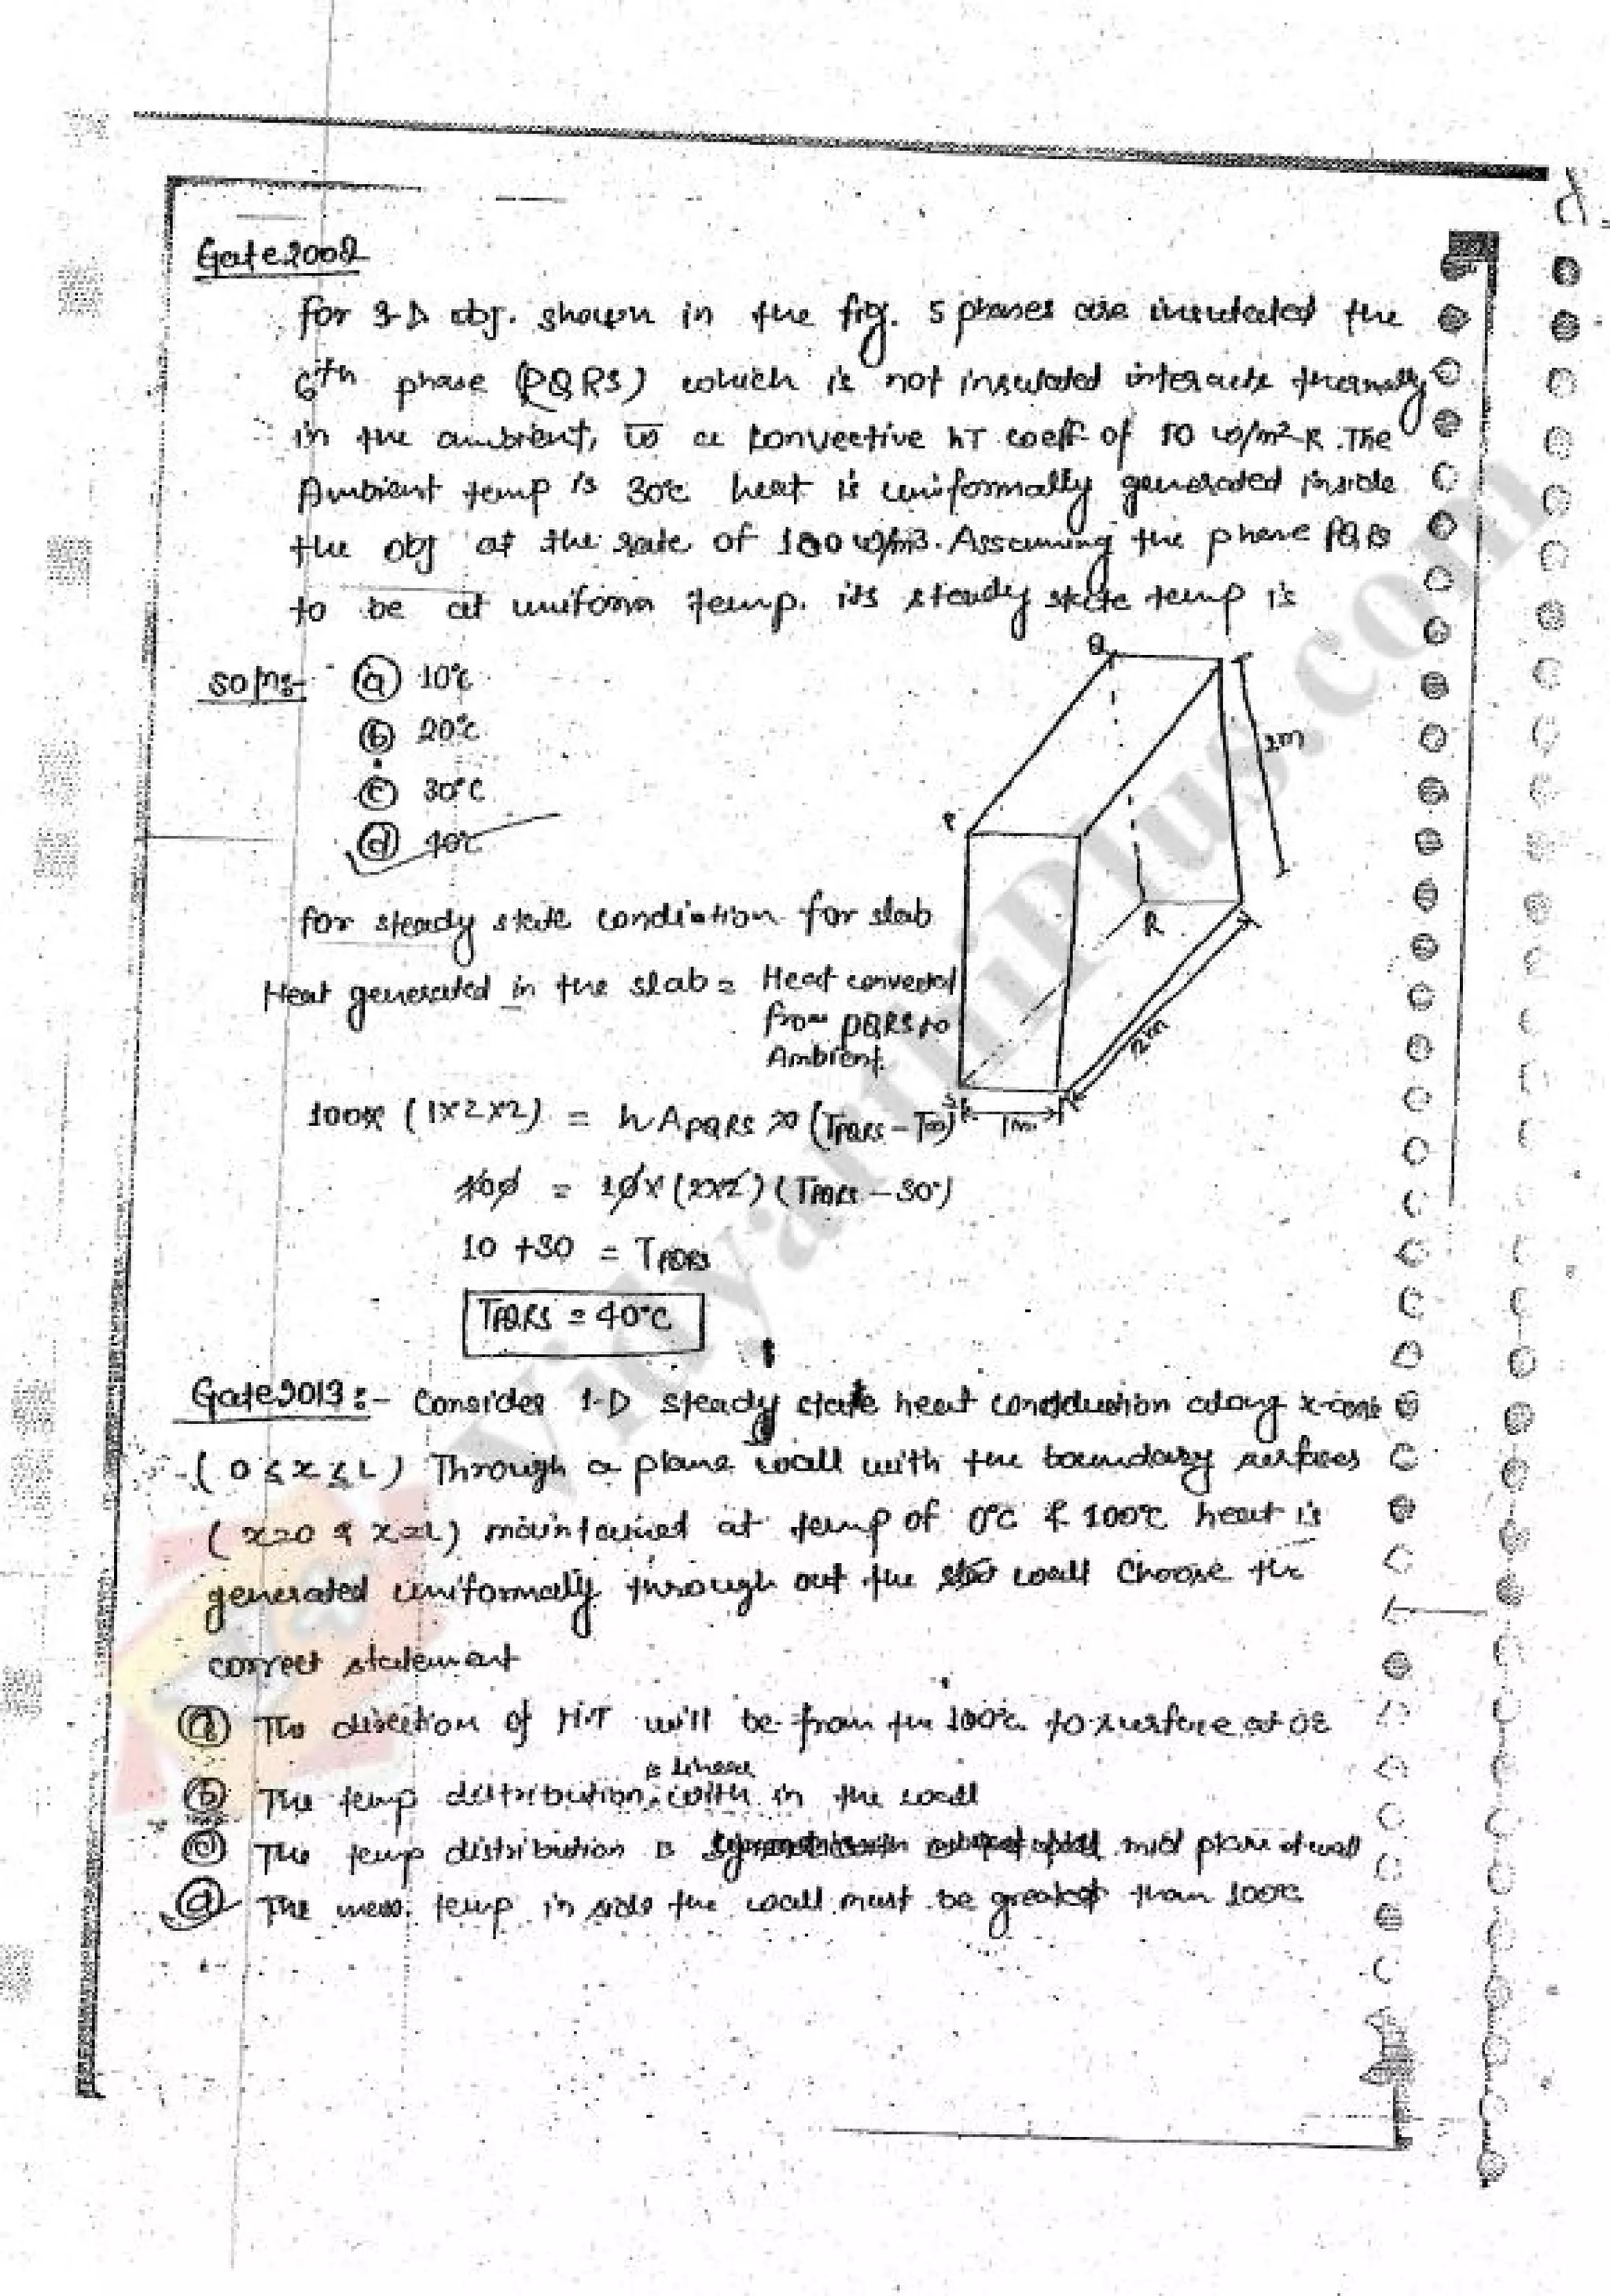 Gate 2008
for 3-D obj. shown in the fig. 5 phases are insulated the
6th phase (PQRS) which is not insulated interacts thermally
in the ambient, w a convective hT coeff of 10 w/m²-K. The
Ambient temp is 30°c heat is uniformally generated inside
the obj at the rate of 100 w/m3. Assuming the phase PQRS
to be at uniform temp. its steady state temp is
Q
Soln:-
(a) 10°c
(b) 20°c
2m
(c) 30°C
P
(d) 40°c
for steady state condiation for slab
R
Heat generated in the slab = Heat convected
from PQRS to
Ambient.
2m
S
1m
100x (1x2x2) = h APQRS x (TPQRS - T∞)
400 = 10x (2x2) (TPQRS - 30°)
10 + 30 = TPQRS
TPQRS = 40°C
Gate 2013:- Consider 1-D steady state heat condduction along x-axis
(0 ≤ x ≤ L) Through a plane wall with the boundary surfaces
(x=0 & x=L) maintained at temp of 0°c & 100°c heat is
generated uniformally through out the wall Choose the
correct statement
(a) The direction of H.T will be from the 100°c to surface at 0°c
is linear
(b) The temp distribution with in the wall
(c) The temp distribution is mid plane of wall
(d) The temp in side the wall must be greater than 100°c
VidyarthiPlus.com